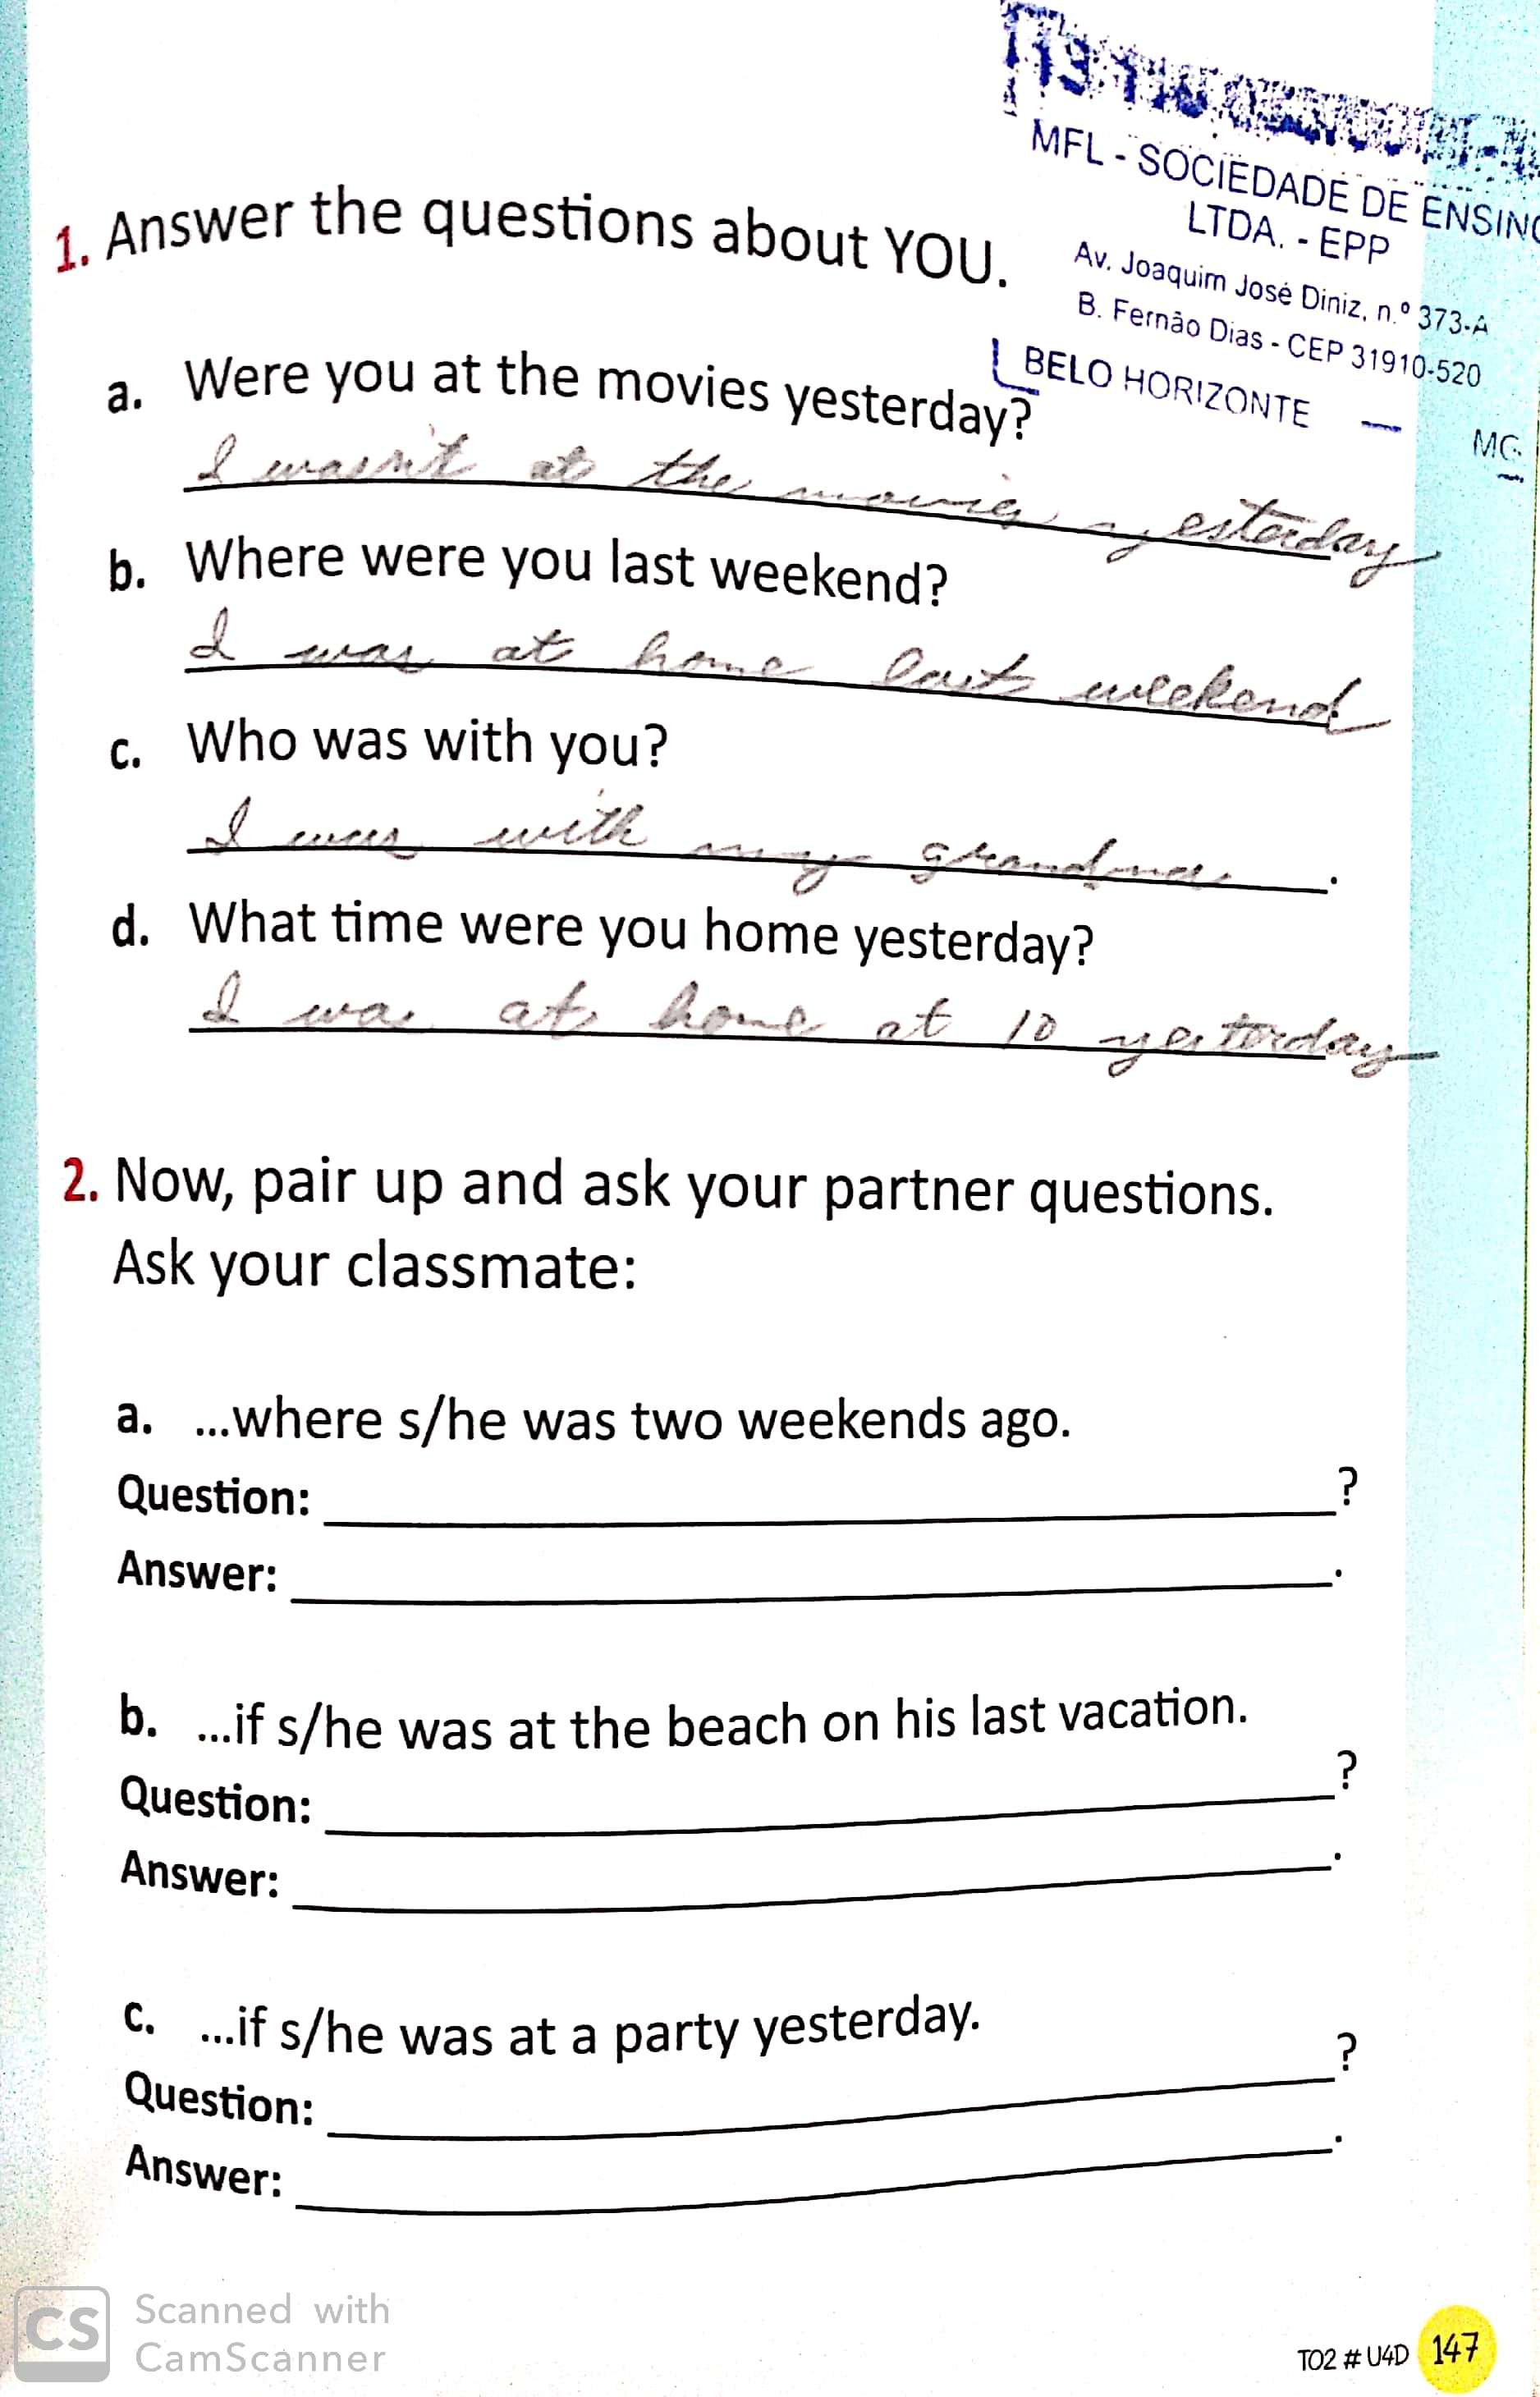 MFL - SOCIEDADE DE ENSINO
LTDA. - EPP
Av. Joaquim José Diniz, n.º 373-A
B. Fernão Dias - CEP 31910-520
BELO HORIZONTE — MG
1. Answer the questions about YOU.
a. Were you at the movies yesterday?
I wasn't at the movies yesterday
b. Where were you last weekend?
I was at home last weekend
c. Who was with you?
I was with my grandma.
d. What time were you home yesterday?
I was at home at 10 yesterday
2. Now, pair up and ask your partner questions.
Ask your classmate:
a. ...where s/he was two weekends ago.
Question: ?
Answer: .
b. ...if s/he was at the beach on his last vacation.
Question: ?
Answer: .
c. ...if s/he was at a party yesterday.
Question: ?
Answer: .
CS Scanned with
CamScanner
TO2 # U4D 147